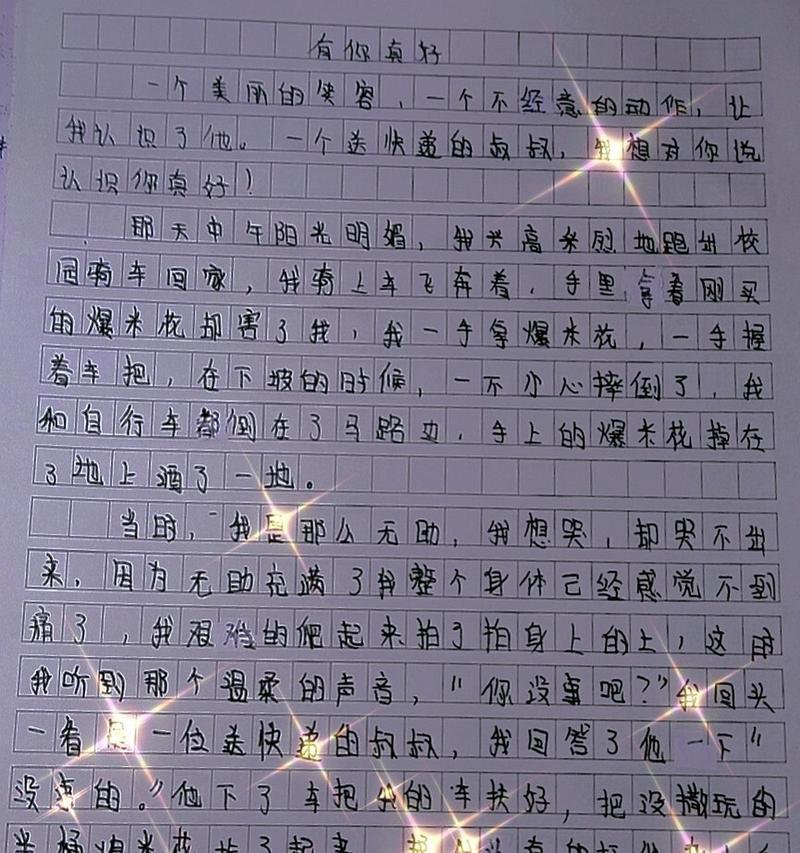 有你真好
一个美丽的笑容,一个不经意的动作,让
我认识了他。一个送快递的叔叔,我想对你说
认识你真好!
那天中午阳光明媚,我兴高采烈地跑出校
园骑车回家,我骑上车飞奔着,手里拿着刚买
的爆米花却害了我,我一手拿爆米花,一手握
着车把,在下坡的时候,一不小心摔倒了,我
和自行车都倒在了马路边,手上的爆米花掉在
了地上洒了一地。
当时,我是那么无助,我想哭,却哭不出
来,因为无助充满了我整个身体已经感觉不到
痛了,我艰难的爬起来拍了拍身上的土,这时
我听到那个温柔的声音,"你没事吧?"我回头
一看是一位送快递的叔叔,我回答了他一下"
没事的。"他下了车把我的车扶好,把没撒玩的
半桶爆米花